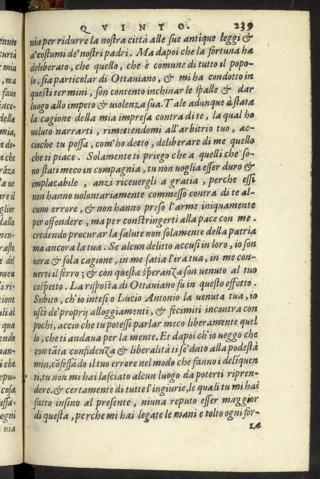 QVINTO. 239
nia per ridurre la nostra città alle sue antique leggi &
a' costumi de' nostri padri. Ma dapoi che la fortuna ha
deliberato, che quello, che è comune di tutto il popo-
lo, sia particolar di Ottauiano, & mi ha condotto in
questi termini, son contento inchinar le spalle & dar
luogo allo impeto & uiolenza sua. Tale adunque è stata
la cagione della mia impresa contra di te, la qual ho
uoluto narrarti, rimettendomi all'arbitrio tuo, ac-
cioche tu possa, com'ho detto, deliberare di me quello
che ti piace. Solamente ti priego che a quelli che so-
no stati meco in compagnia, tu non uoglia esser duro &
implacabile, anzi riceuergli a gratia, perche essi
non hanno uolontariamente commesso contra di te al-
cuno errore, & non hanno preso l'arme iniquamente
per offendere, ma per constringerti alla pace con me.
credendo procurar la salute non solamente della patria
ma ancora la tua. Se alcun delitto accusi in loro, io son
uera & sola cagione, in me satia l'ira tua, in me con-
uerti il ferro; & con questa speranza son uenuto al tuo
cospetto. La risposta di Ottauiano fu in questo effetto.
Subito, ch'io intesi o Lucio Antonio la uenuta tua, io
usci de' proprij alloggiamenti, & fecimiti incontra con
pochi, accio che tu potessi parlar meco liberamente quel
lo, che ti andaua per la mente. Et dapoi ch'io ueggo che
con tãta confidenza & liberalità ti se' dato alla podestà
mia, cõfessãdo il tuo errore nel modo che fanno i deliquen
ti, tu non mi hai lasciato alcun luogo da poterti ripren-
dere. & certamente di tutte l'ingiurie, le quali tu mi hai
fatto insino al presente, niuna reputo esser maggior
di questa, perche mi hai legate le mani e tolto ogni for-